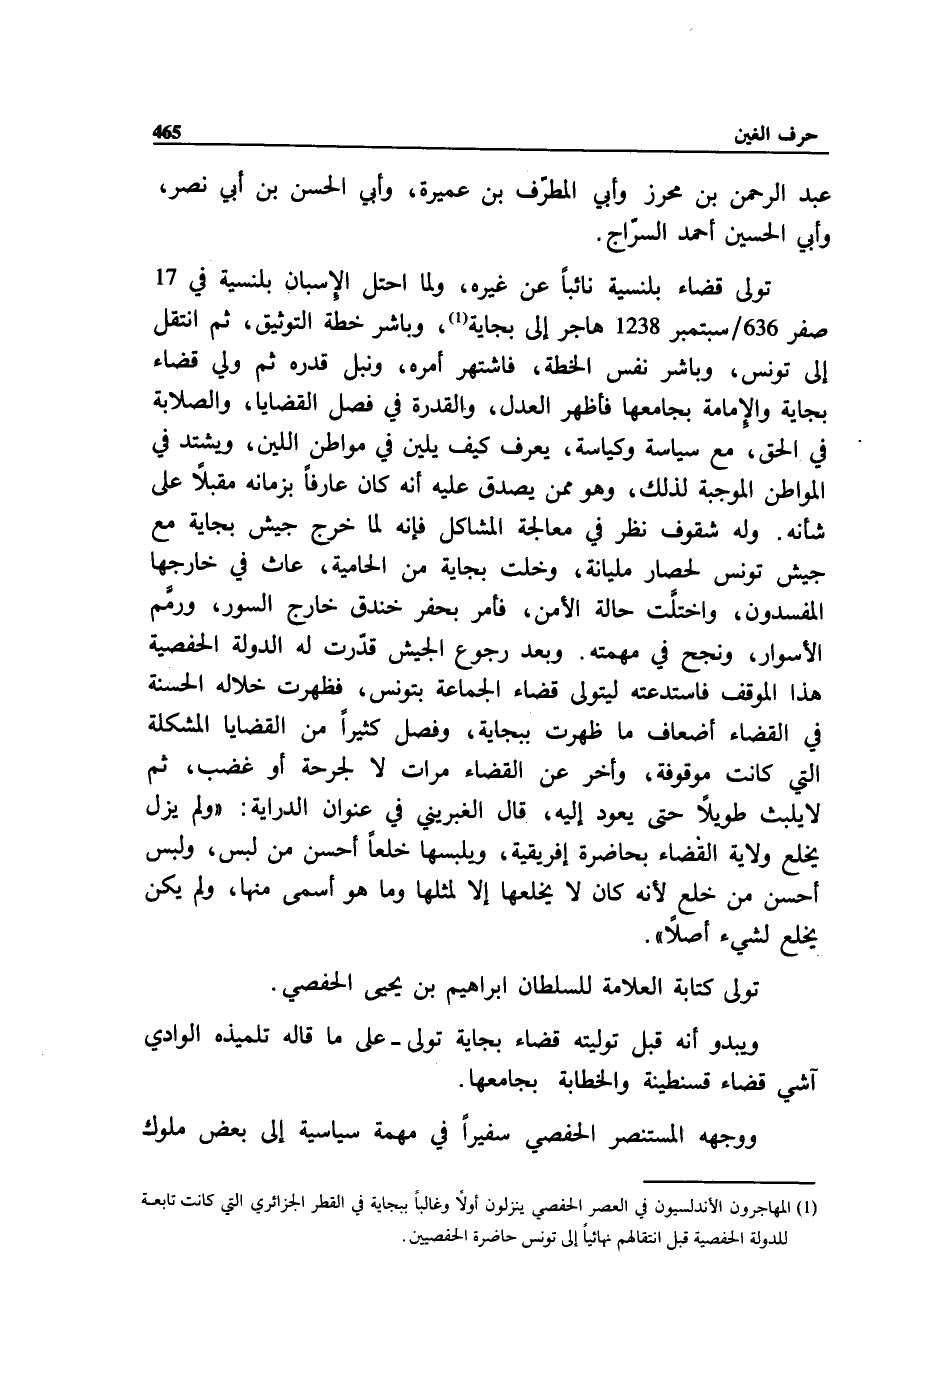 حرف الغين 465
عبد الرحمن بن محرز وأبي المطرّف بن عميرة، وأبي الحسن بن أبي نصر،
وأبي الحسين أحمد السرّاج.
تولى قضاء بلنسية نائباً عن غيره، ولما احتل الإسبان بلنسية في 17
صفر 636/سبتمبر 1238 هاجر إلى بجاية(1)، وباشر خطة التوثيق، ثم انتقل
إلى تونس، وباشر نفس الخطة، فاشتهر أمره، ونبل قدره ثم ولي قضاء
بجاية والإمامة بجامعها فأظهر العدل، والقدرة في فصل القضايا، والصلابة
في الحق، مع سياسة وكياسة، يعرف كيف يلين في مواطن اللين، ويشتد في
المواطن الموجبة لذلك، وهو ممن يصدق عليه أنه كان عارفاً بزمانه مقبلاً على
شأنه. وله شفوف نظر في معالجة المشاكل فإنه لما خرج جيش بجاية مع
جيش تونس لحصار مليانة، وخلت بجاية من الحامية، عاث في خارجها
المفسدون، واختلّت حالة الأمن، فأمر بحفر خندق خارج السور، ورمَّم
الأسوار، ونجح في مهمته. وبعد رجوع الجيش قدّرت له الدولة الحفصية
هذا الموقف فاستدعته ليتولى قضاء الجماعة بتونس، فظهرت خلاله الحسنة
في القضاء أضعاف ما ظهرت ببجاية، وفصل كثيراً من القضايا المشكلة
التي كانت موقوفة، وأخر عن القضاء مرات لا لجرحة أو غضب، ثم
لايلبث طويلاً حتى يعود إليه، قال الغبريني في عنوان الدراية: «ولم يزل
يخلع ولاية القضاء بحاضرة إفريقية، ويلبسها خلعاً أحسن من لبس، ولبس
أحسن من خلع لأنه كان لا يخلعها إلا لمثلها وما هو أسمى منها، ولم يكن
يخلع لشيء أصلاً».
تولى كتابة العلامة للسلطان ابراهيم بن يحيى الحفصي.
ويبدو أنه قبل توليته قضاء بجاية تولى - على ما قاله تلميذه الوادي
آشي قضاء قسنطينة والخطابة بجامعها.
ووجهه المستنصر الحفصي سفيراً في مهمة سياسية إلى بعض ملوك
(1) المهاجرون الأندلسيون في العصر الحفصي ينزلون أولاً وغالباً ببجاية في القطر الجزائري التي كانت تابعة
للدولة الحفصية قبل انتقالهم نهائياً إلى تونس حاضرة الحفصيين.